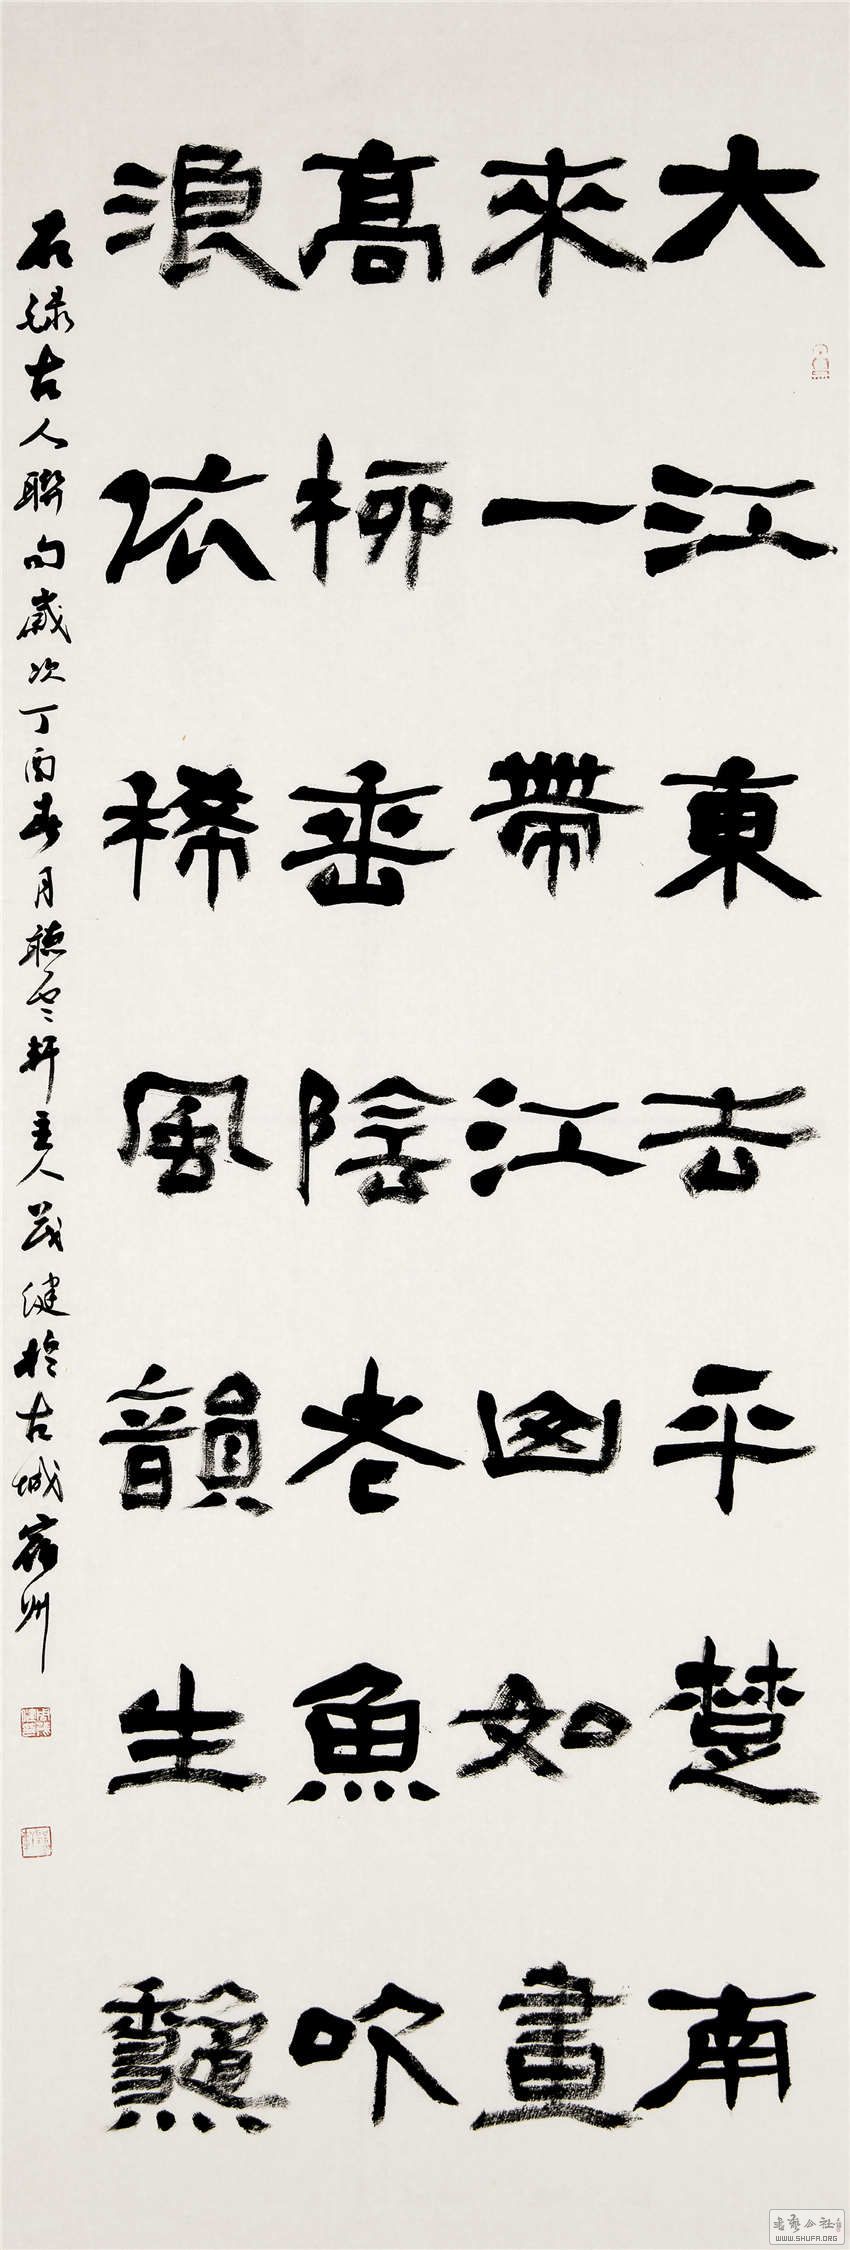 大江東去平楚南
來一帶江山如畫
高柳垂陰老魚吹
浪依稀風韻生龝
右録古人聯句歲次丁酉春月聽軒主人茂健於古城宿州
书艺公社
WWW.SHUFA.ORG